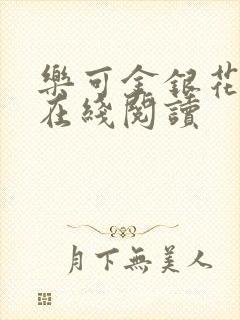 樂可金銀花
在綫閱讀
月下無美人